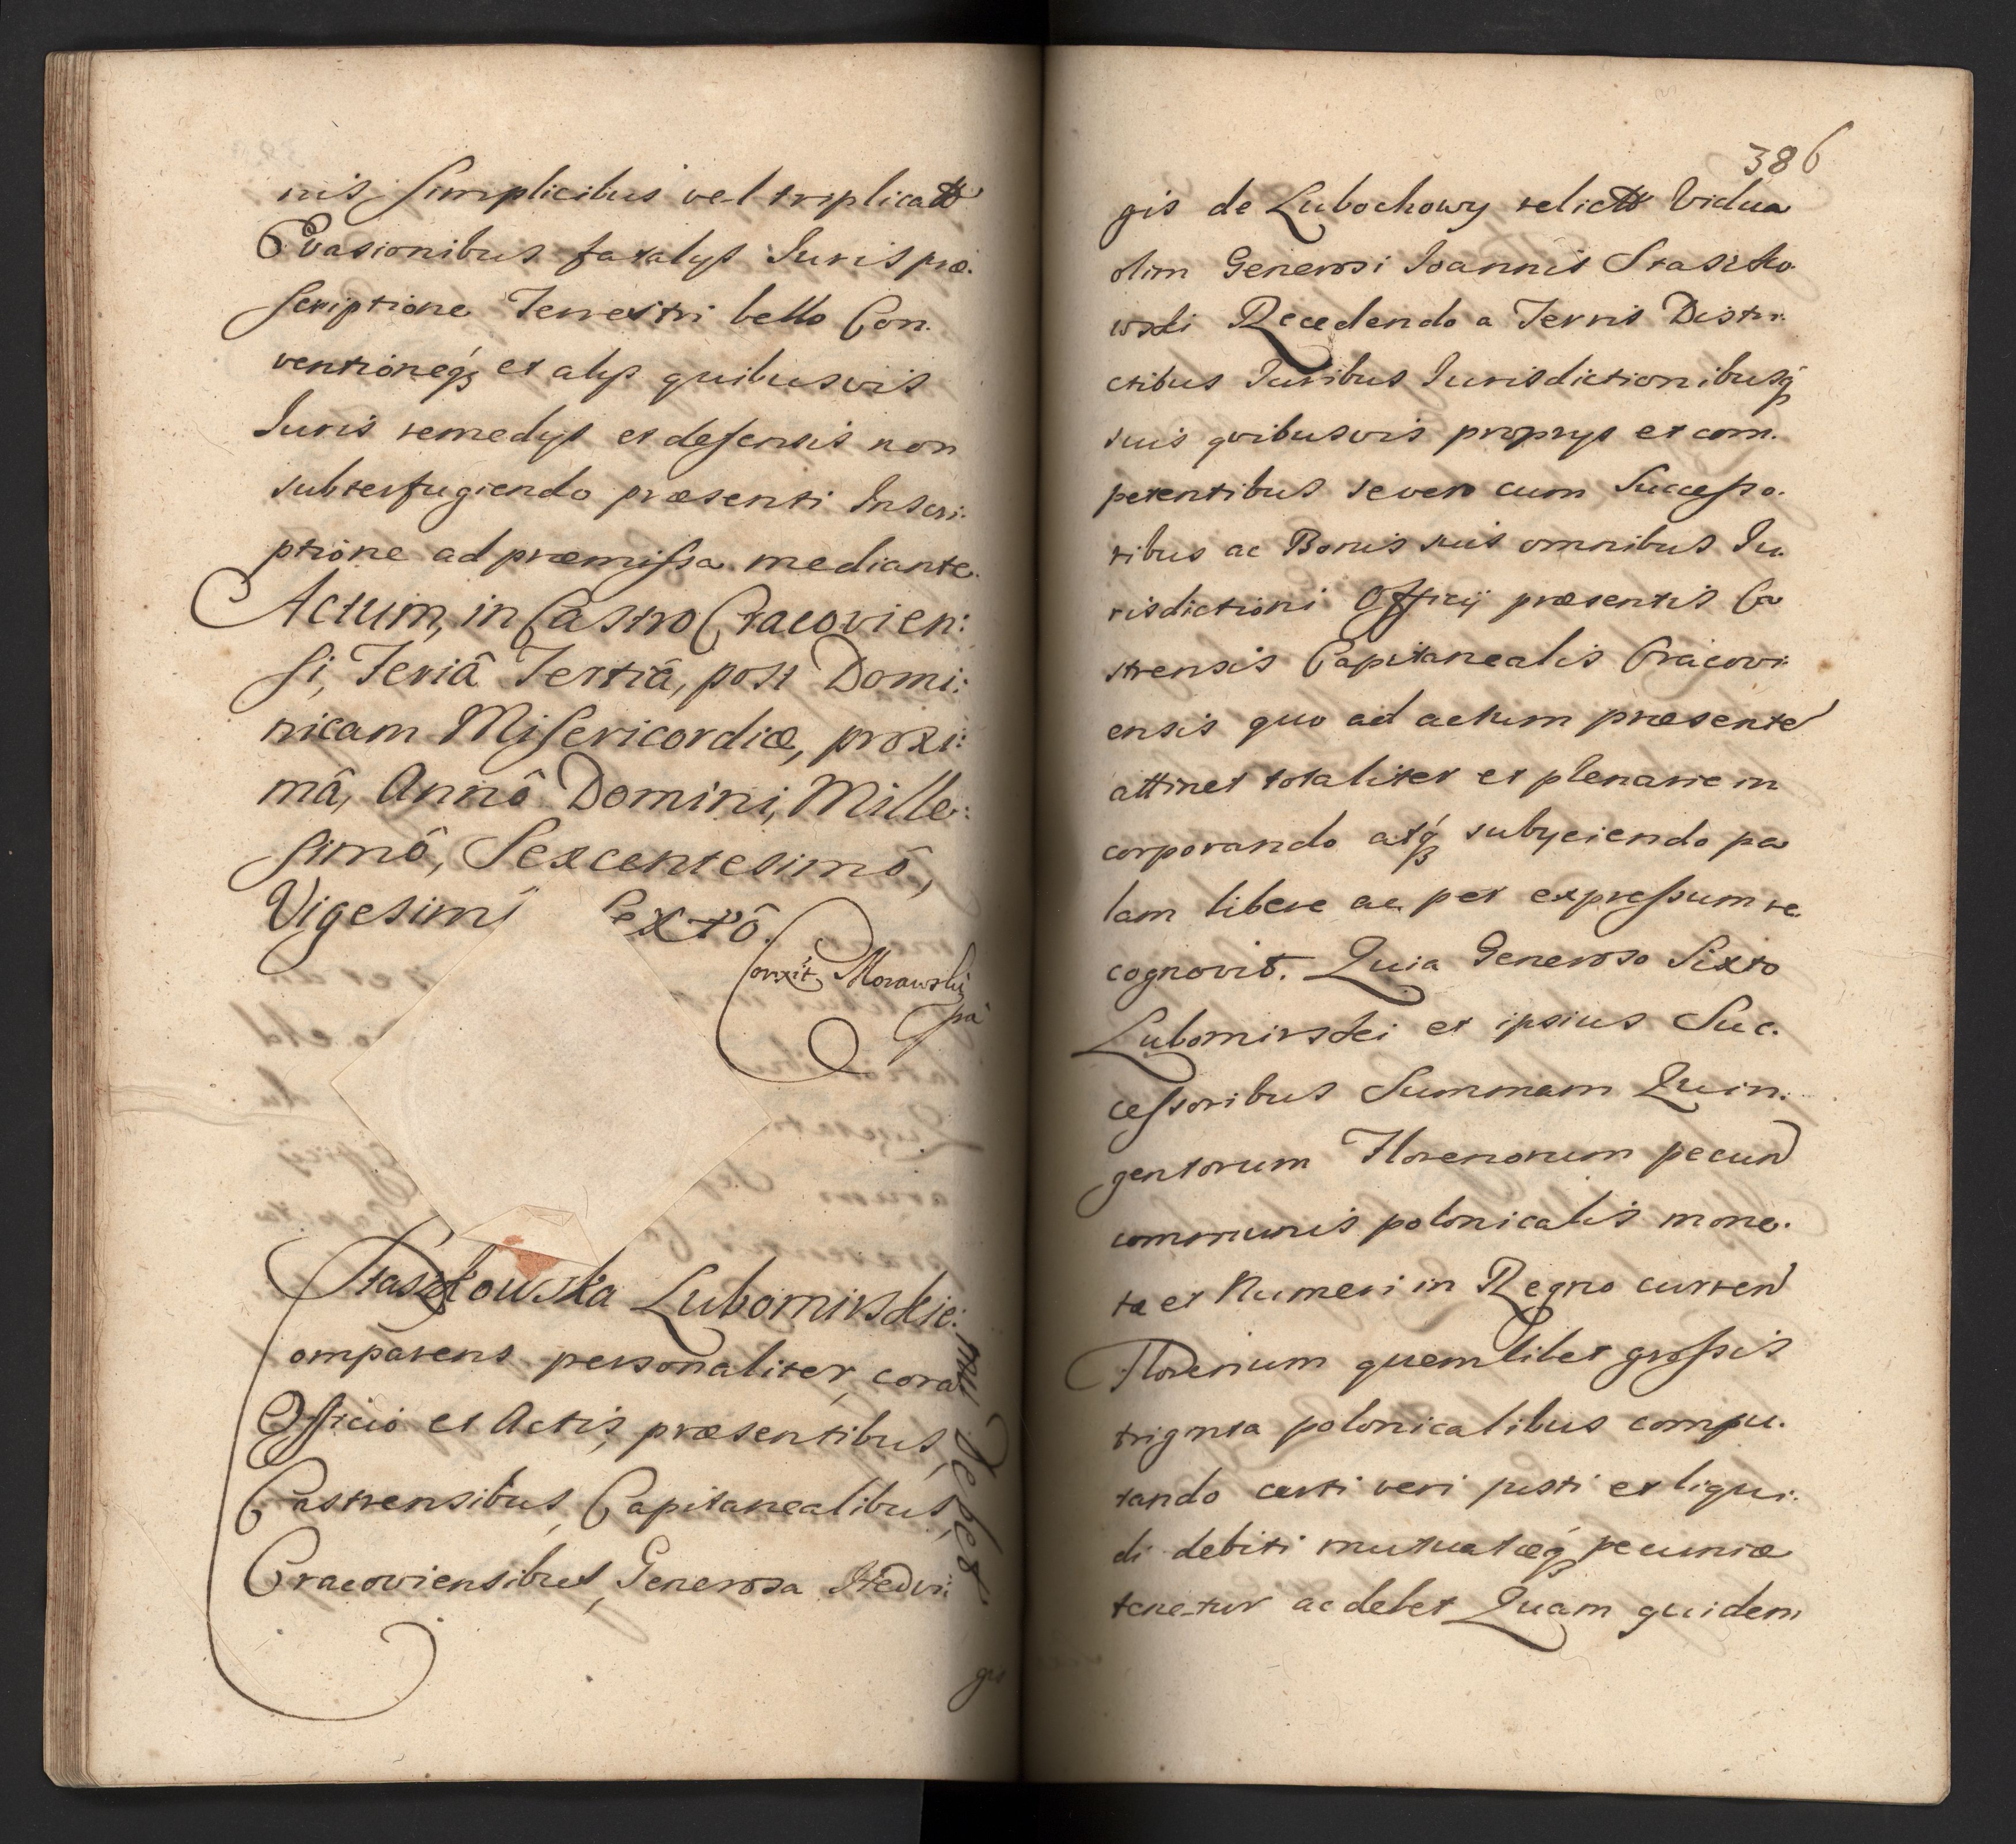 nis, simplicibus vel triplicatt
Evasionibus fatalys Iuris præ.
scriptione Terrestri bello Con.
ventioneq́ꝫ et alys quibusvis
Iuris remedys et defensis non
subterfugiendo præsenti Inscri:
ptione ad præmissa mediante.
Actum, in Castro Cracovien:
si, Feriâ Tertiâ, post Domi:
nicam Misericordiæ, proxi:
mâ, Annô Domini, Mille:
simô, Sexcentesimô,
Vigesimô Sextô.
Corrxit, Morawski
Staszkowska Lubomirskie:
mu Debet
Comparens personaliter, cora
Officio et Actis, præsentibus,
Castrensibus, Capitanealibus,
Cracoviensibus, Generosa Hedvi:
gis
386
gis de Lubochowy relictt Vidua
olim Generosi Ioannis Staszko.
wski Recedendo a Terris Distri.
ctibus Iuribus Iurisdictionibusq́
suis quibusvis proprys et com.
petentibus severo cum Successo.
ribus ac Bonis suis omnibus Iu.
risdictioni Officij præsentis Ca
strensis Capitanealis Cracovi
ensis quo ad actum præsente
attinet totaliter et plenarie in
corporando atq́ꝫ subyciendo pa
lam libere ac per expressum re.
cognovit. Quia Generoso Sixto
Lubomirskei et ipsius Suc.
cessoribus Summam Quin.
gentorum Florenorum pecun
communis polonicalis mone.
ta et Numeri in Regno curren
Florenum quemlibet grossis
triginta polonicalibus compu.
tando certi veri justi et liqui.
di debiti mutuatæq́ꝫ pecuniæ
tenetur ac debet Quam quidem